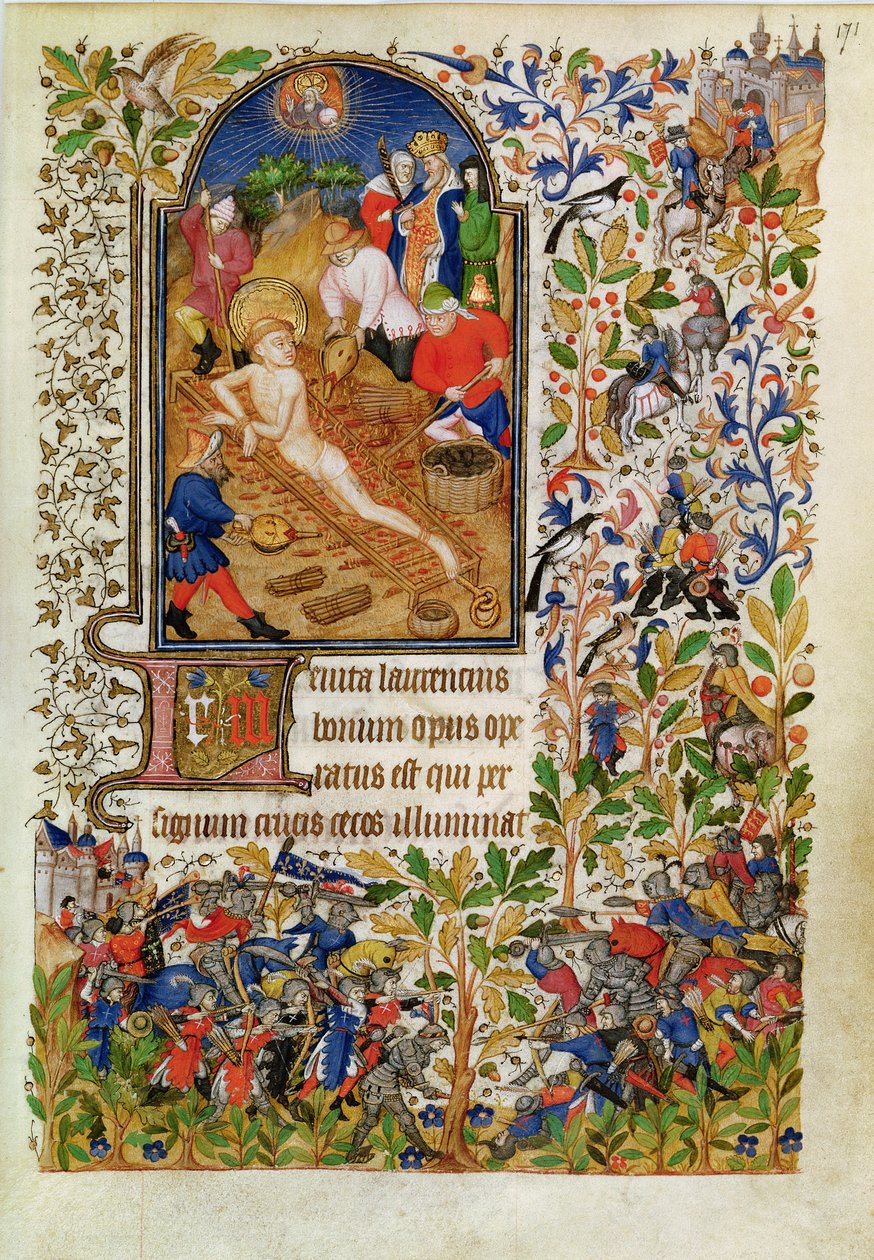 171
Leuita laurencius
bonum opus ope
ratus est qui per
signum crucis cecos illuminat